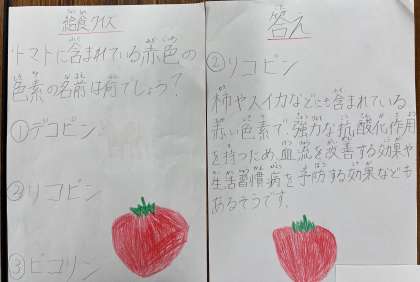 給食クイズ
トマトに含まれている赤色の
色素の名前は何でしょう？
①デコピン
②リコピン
③ピコリン
答え
②リコピン
柿やスイカなどにも含まれている
赤い色素で、強力な抗酸化作用
を持つため血流を改善する効果や
生活習慣病を予防する効果なども
あるそうです。